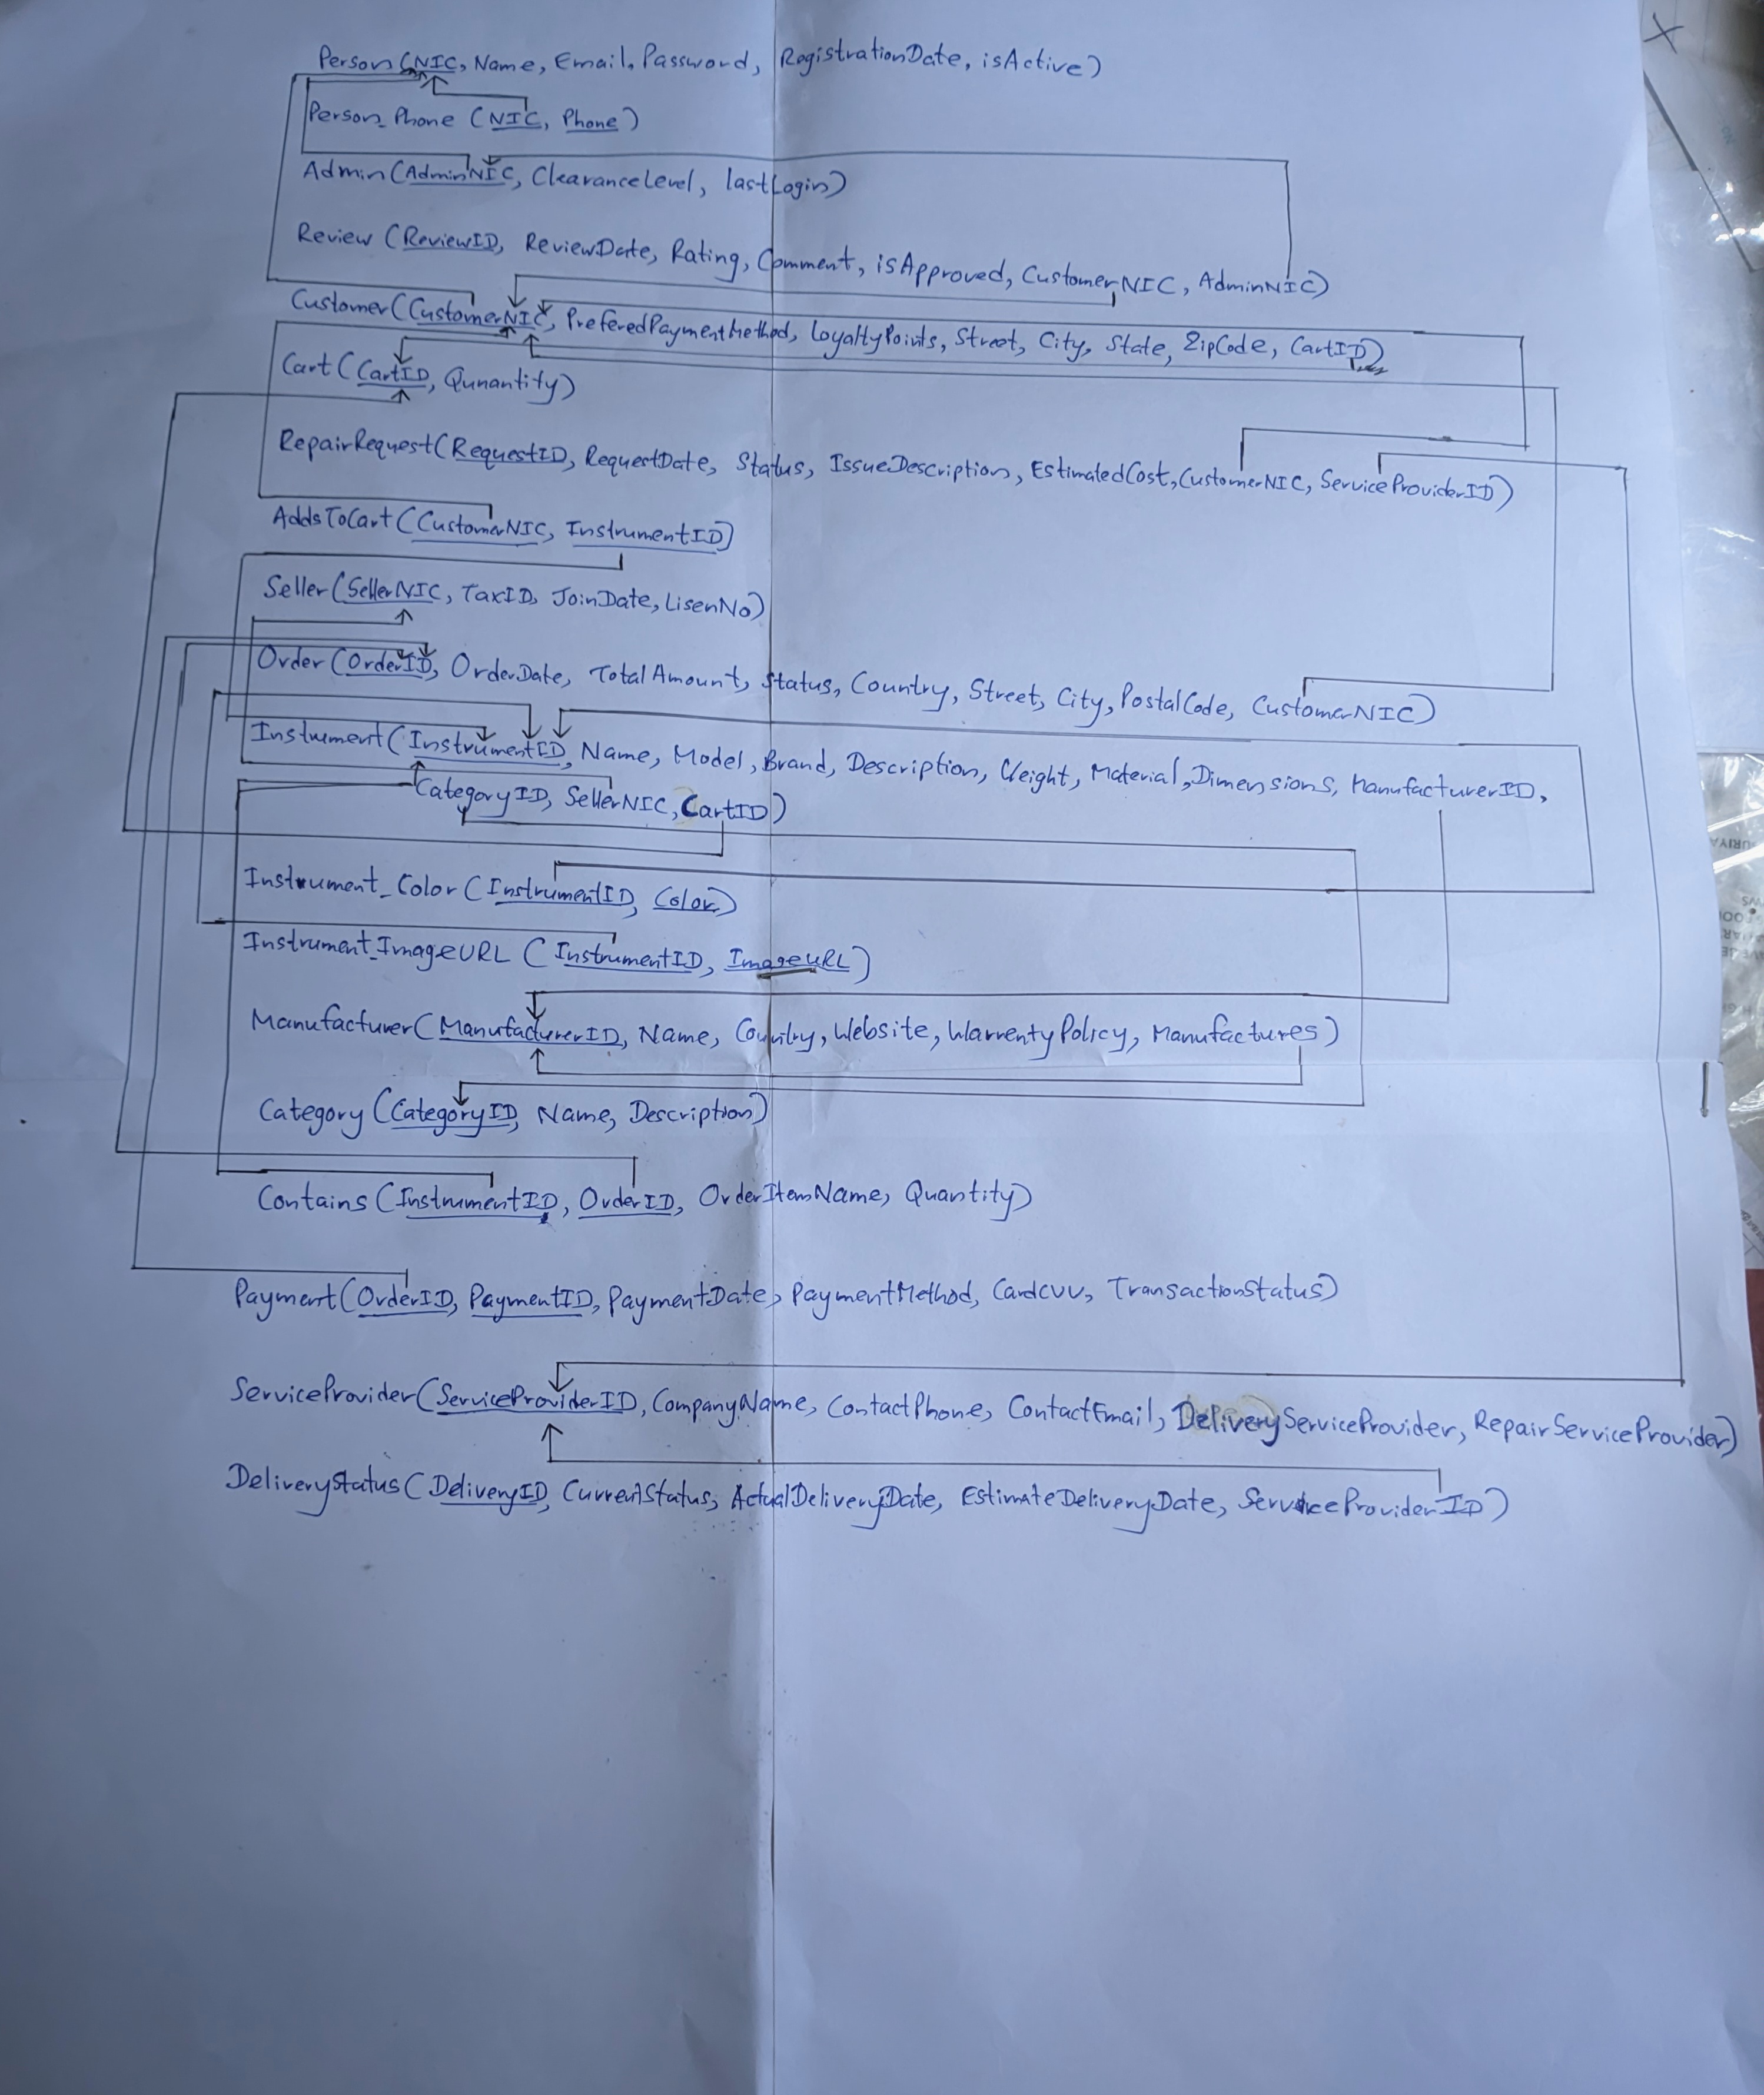 Person (NIC, Name, Email, Password, RegistrationDate, isActive)
Person_Phone (NIC, Phone)
Admin (AdminNIC, ClearanceLevel, lastLogin)
Review (ReviewID, ReviewDate, Rating, Comment, isApproved, CustomerNIC, AdminNIC)
Customer (CustomerNIC, PreferedPaymentMethod, LoyaltyPoints, Street, City, State, ZipCode, CartID)
Cart (CartID, Qunantity)
RepairRequest (RequestID, RequestDate, Status, IssueDescription, EstimatedCost, CustomerNIC, ServiceProviderID)
AddsToCart (CustomerNIC, InstrumentID)
Seller (SellerNIC, TaxID, JoinDate, LisenNo)
Order (OrderID, OrderDate, TotalAmount, Status, Country, Street, City, PostalCode, CustomerNIC)
Instrument (InstrumentID, Name, Model, Brand, Description, Weight, Material, Dimensions, ManufacturerID,
CategoryID, SellerNIC, CartID)
Instrument_Color (InstrumentID, Color)
Instrument_ImageURL (InstrumentID, ImageURL)
Manufacturer (ManufacturerID, Name, Country, Website, WarrentyPolicy, Manufactures)
Category (CategoryID, Name, Description)
Contains (InstrumentID, OrderID, OrderItemName, Quantity)
Payment (OrderID, PaymentID, PaymentDate, PaymentMethod, CardCVV, TransactionStatus)
ServiceProvider (ServiceProviderID, CompanyName, ContactPhone, ContactEmail, DeliveryServiceProvider, RepairServiceProvider)
DeliveryStatus (DeliveryID, CurrentStatus, ActualDeliveryDate, EstimateDeliveryDate, ServiceProviderID)